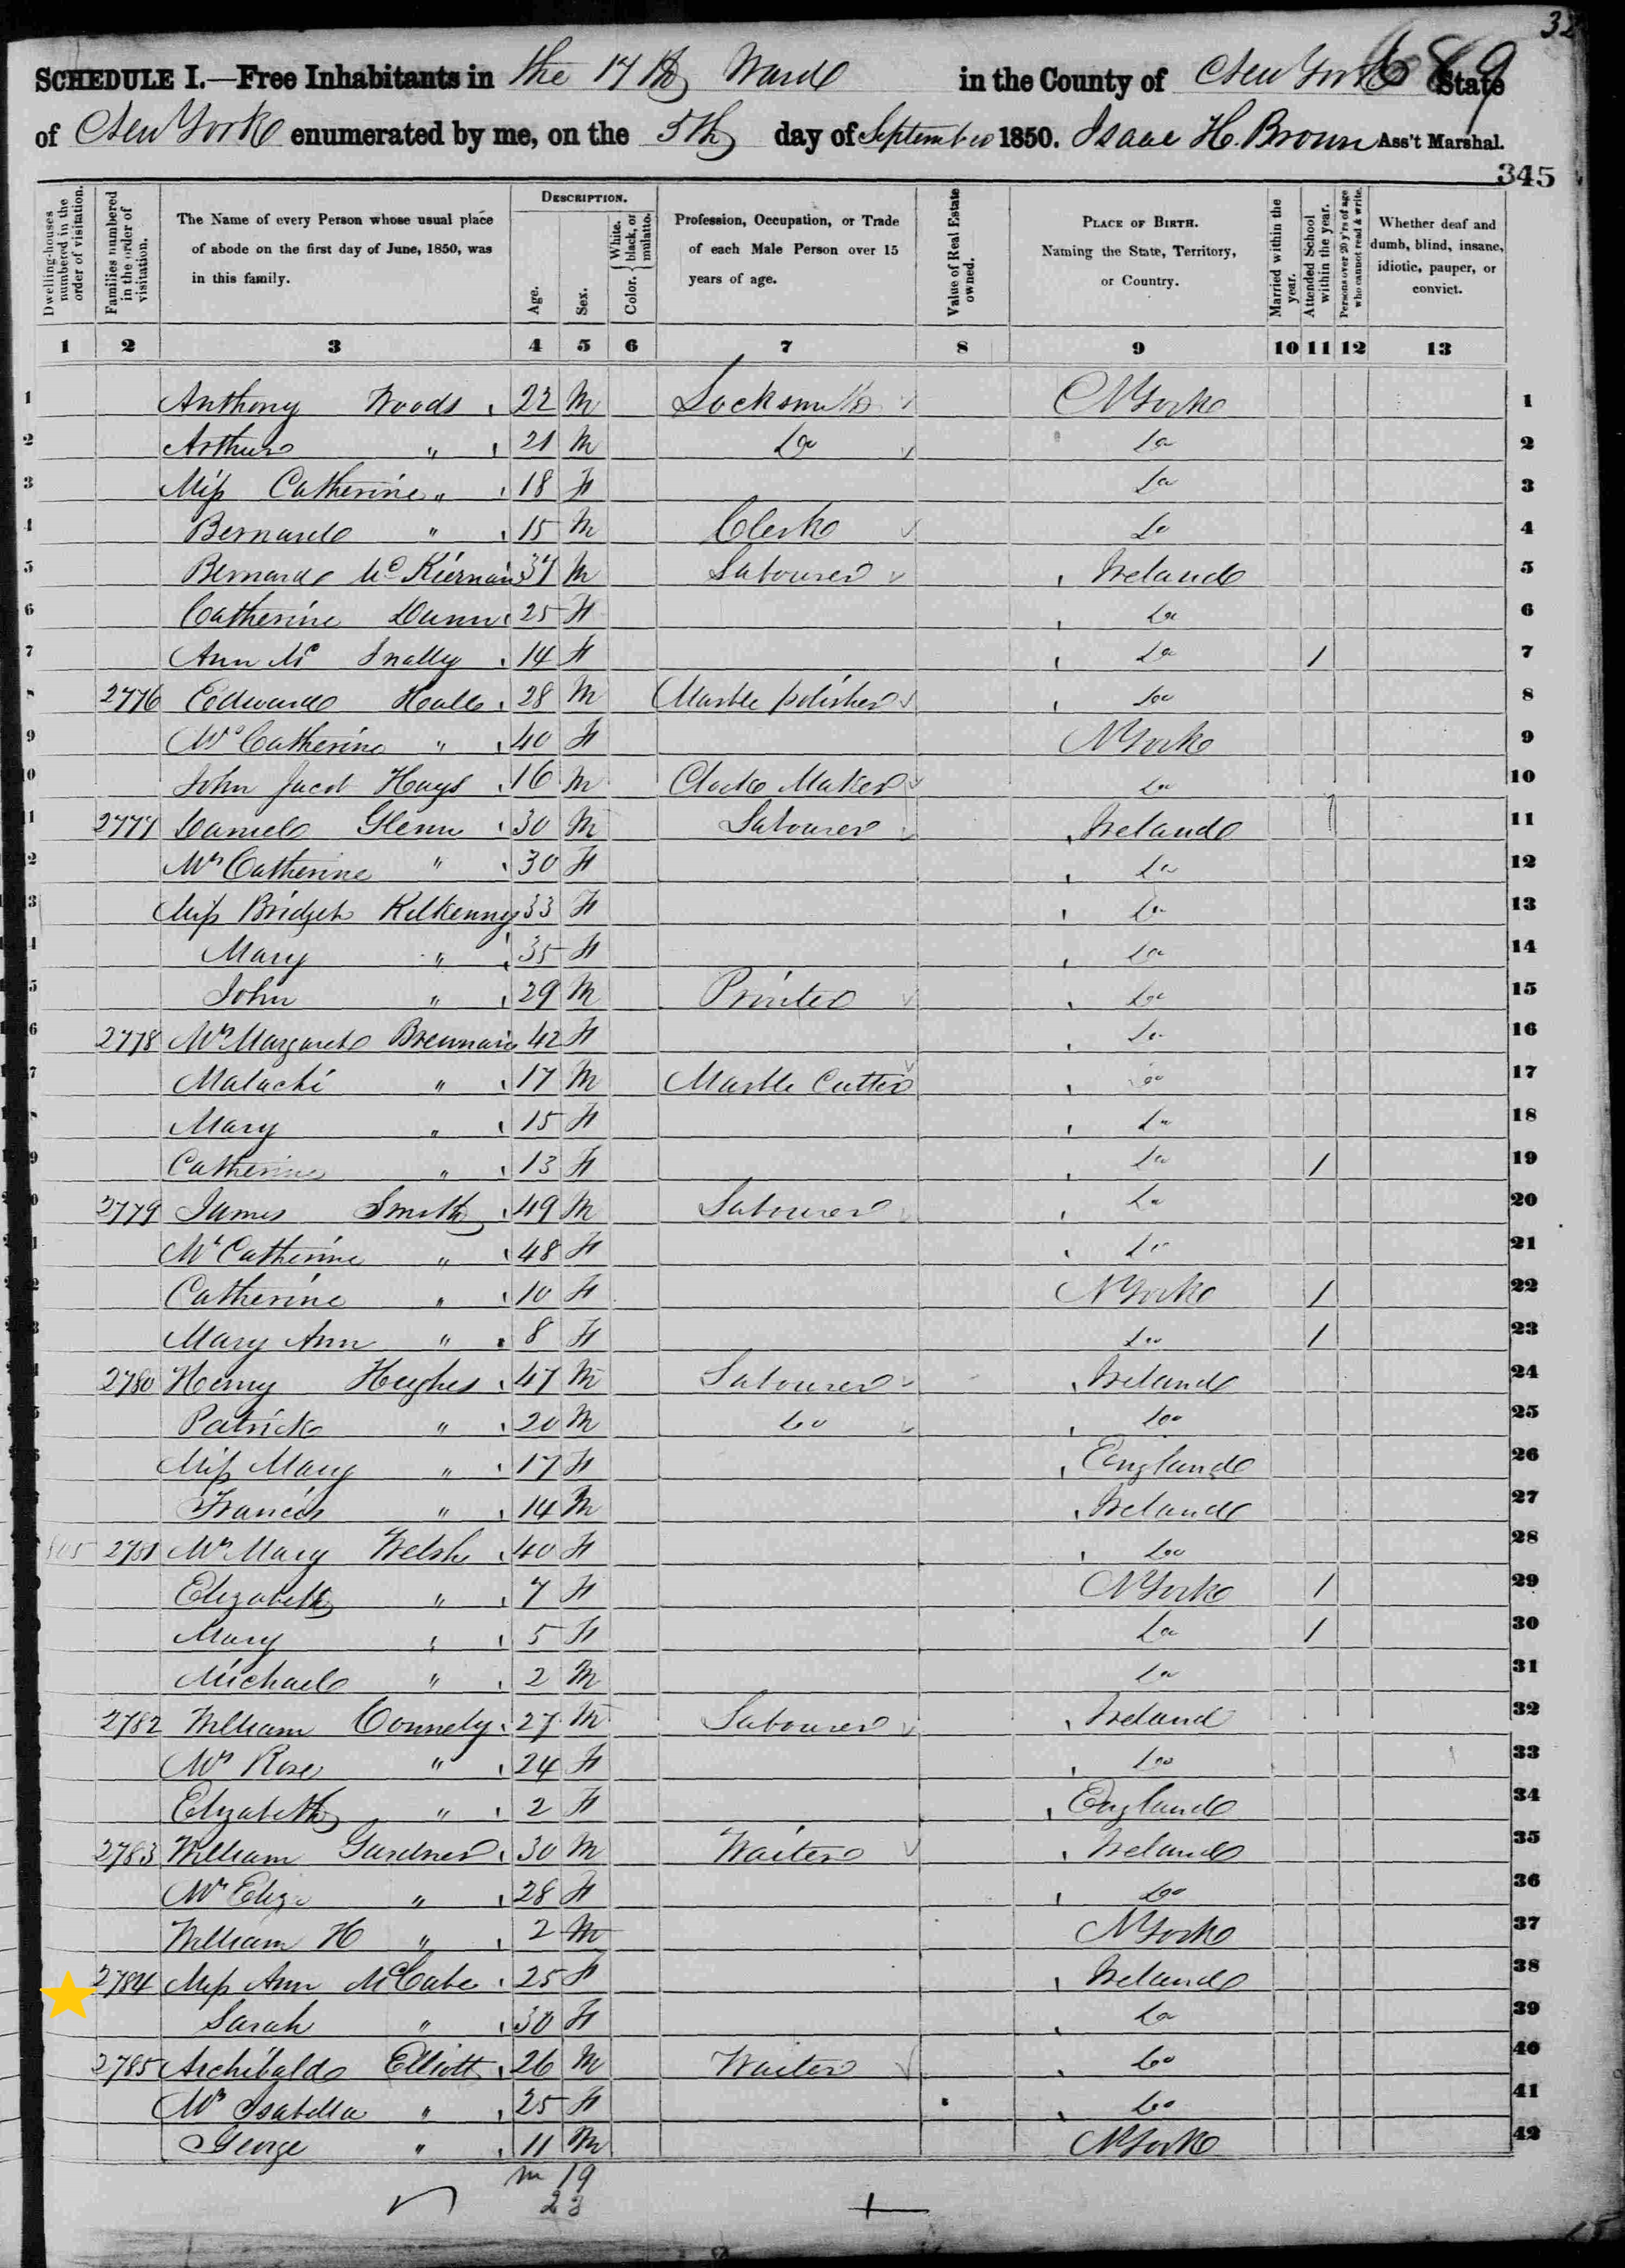 32
689
SCHEDULE I.—Free Inhabitants in the 17th Ward in the County of New York State
of New York enumerated by me, on the 5th day of September 1850. Isaac H. Brown Ass't Marshal.
345
Dwelling-houses numbered in the order of visitation.
Families numbered in the order of visitation.
The Name of every Person whose usual place of abode on the first day of June, 1850, was in this family.
DESCRIPTION.
Age.
Sex.
Color. { White, black, or mulatto.
Profession, Occupation, or Trade of each Male Person over 15 years of age.
Value of Real Estate owned.
PLACE OF BIRTH. Naming the State, Territory, or Country.
Married within the year.
Attended School within the year.
Persons over 20 y'rs of age who cannot read & write.
Whether deaf and dumb, blind, insane, idiotic, pauper, or convict.
1 2 3 4 5 6 7 8 9 10 11 12 13
1 Anthony Woods 22 M Locksmith N York 1
2 Arthur " 21 M Do Do 2
3 Miss Catherine " 18 F Do 3
4 Bernard " 15 M Clerk Do 4
5 Bernard McKiernan 37 M Labourer Ireland 5
6 Catherine Dunn 25 F Do 6
7 Ann Mc Inally 14 F Do / 7
8 2776 Edward Hall 28 M Marble polisher Do 8
9 Mrs Catherine " 40 F N York 9
10 John Jacob Hays 16 M Clock Maker Do 10
11 2777 Daniel Glenn 30 M Labourer Ireland 11
12 Mrs Catherine " 30 F Do 12
13 Miss Bridget Kilkenny 33 F Do 13
14 Mary " 35 F Do 14
15 John " 29 M Printer Do 15
16 2778 Mrs Margaret Brennan 42 F Do 16
17 Malachi " 17 M Marble Cutter Do 17
18 Mary " 15 F Do 18
19 Catherine " 13 F Do / 19
20 2779 James Smith 49 M Labourer Do 20
21 Mrs Catherine " 48 F Do 21
22 Catherine " 10 F N York / 22
23 Mary Ann " 8 F Do / 23
2780 Henry Hughes 47 M Labourer Ireland 24
Patrick " 20 M Do Do 25
Miss Mary " 17 F England 26
Francis " 14 M Ireland 27
805 2781 Mrs Mary Welsh 40 F Do 28
Elizabeth " 7 F N York / 29
Mary " 5 F Do / 30
Michael " 2 M Do 31
2782 William Connely 27 M Labourer Ireland 32
Mrs Rose " 24 F Do 33
Elizabeth " 2 F England 34
2783 William Gardner 30 M Waiter Ireland 35
Mrs Eliza " 28 F Do 36
William H " 2 M N York 37
2784 Miss Ann McCabe 25 F Ireland 38
Sarah " 30 F Do 39
2785 Archibald Elliott 26 M Waiter Do 40
Mrs Isabella " 25 F Do 41
George " 11 M N York 42
m 19
23